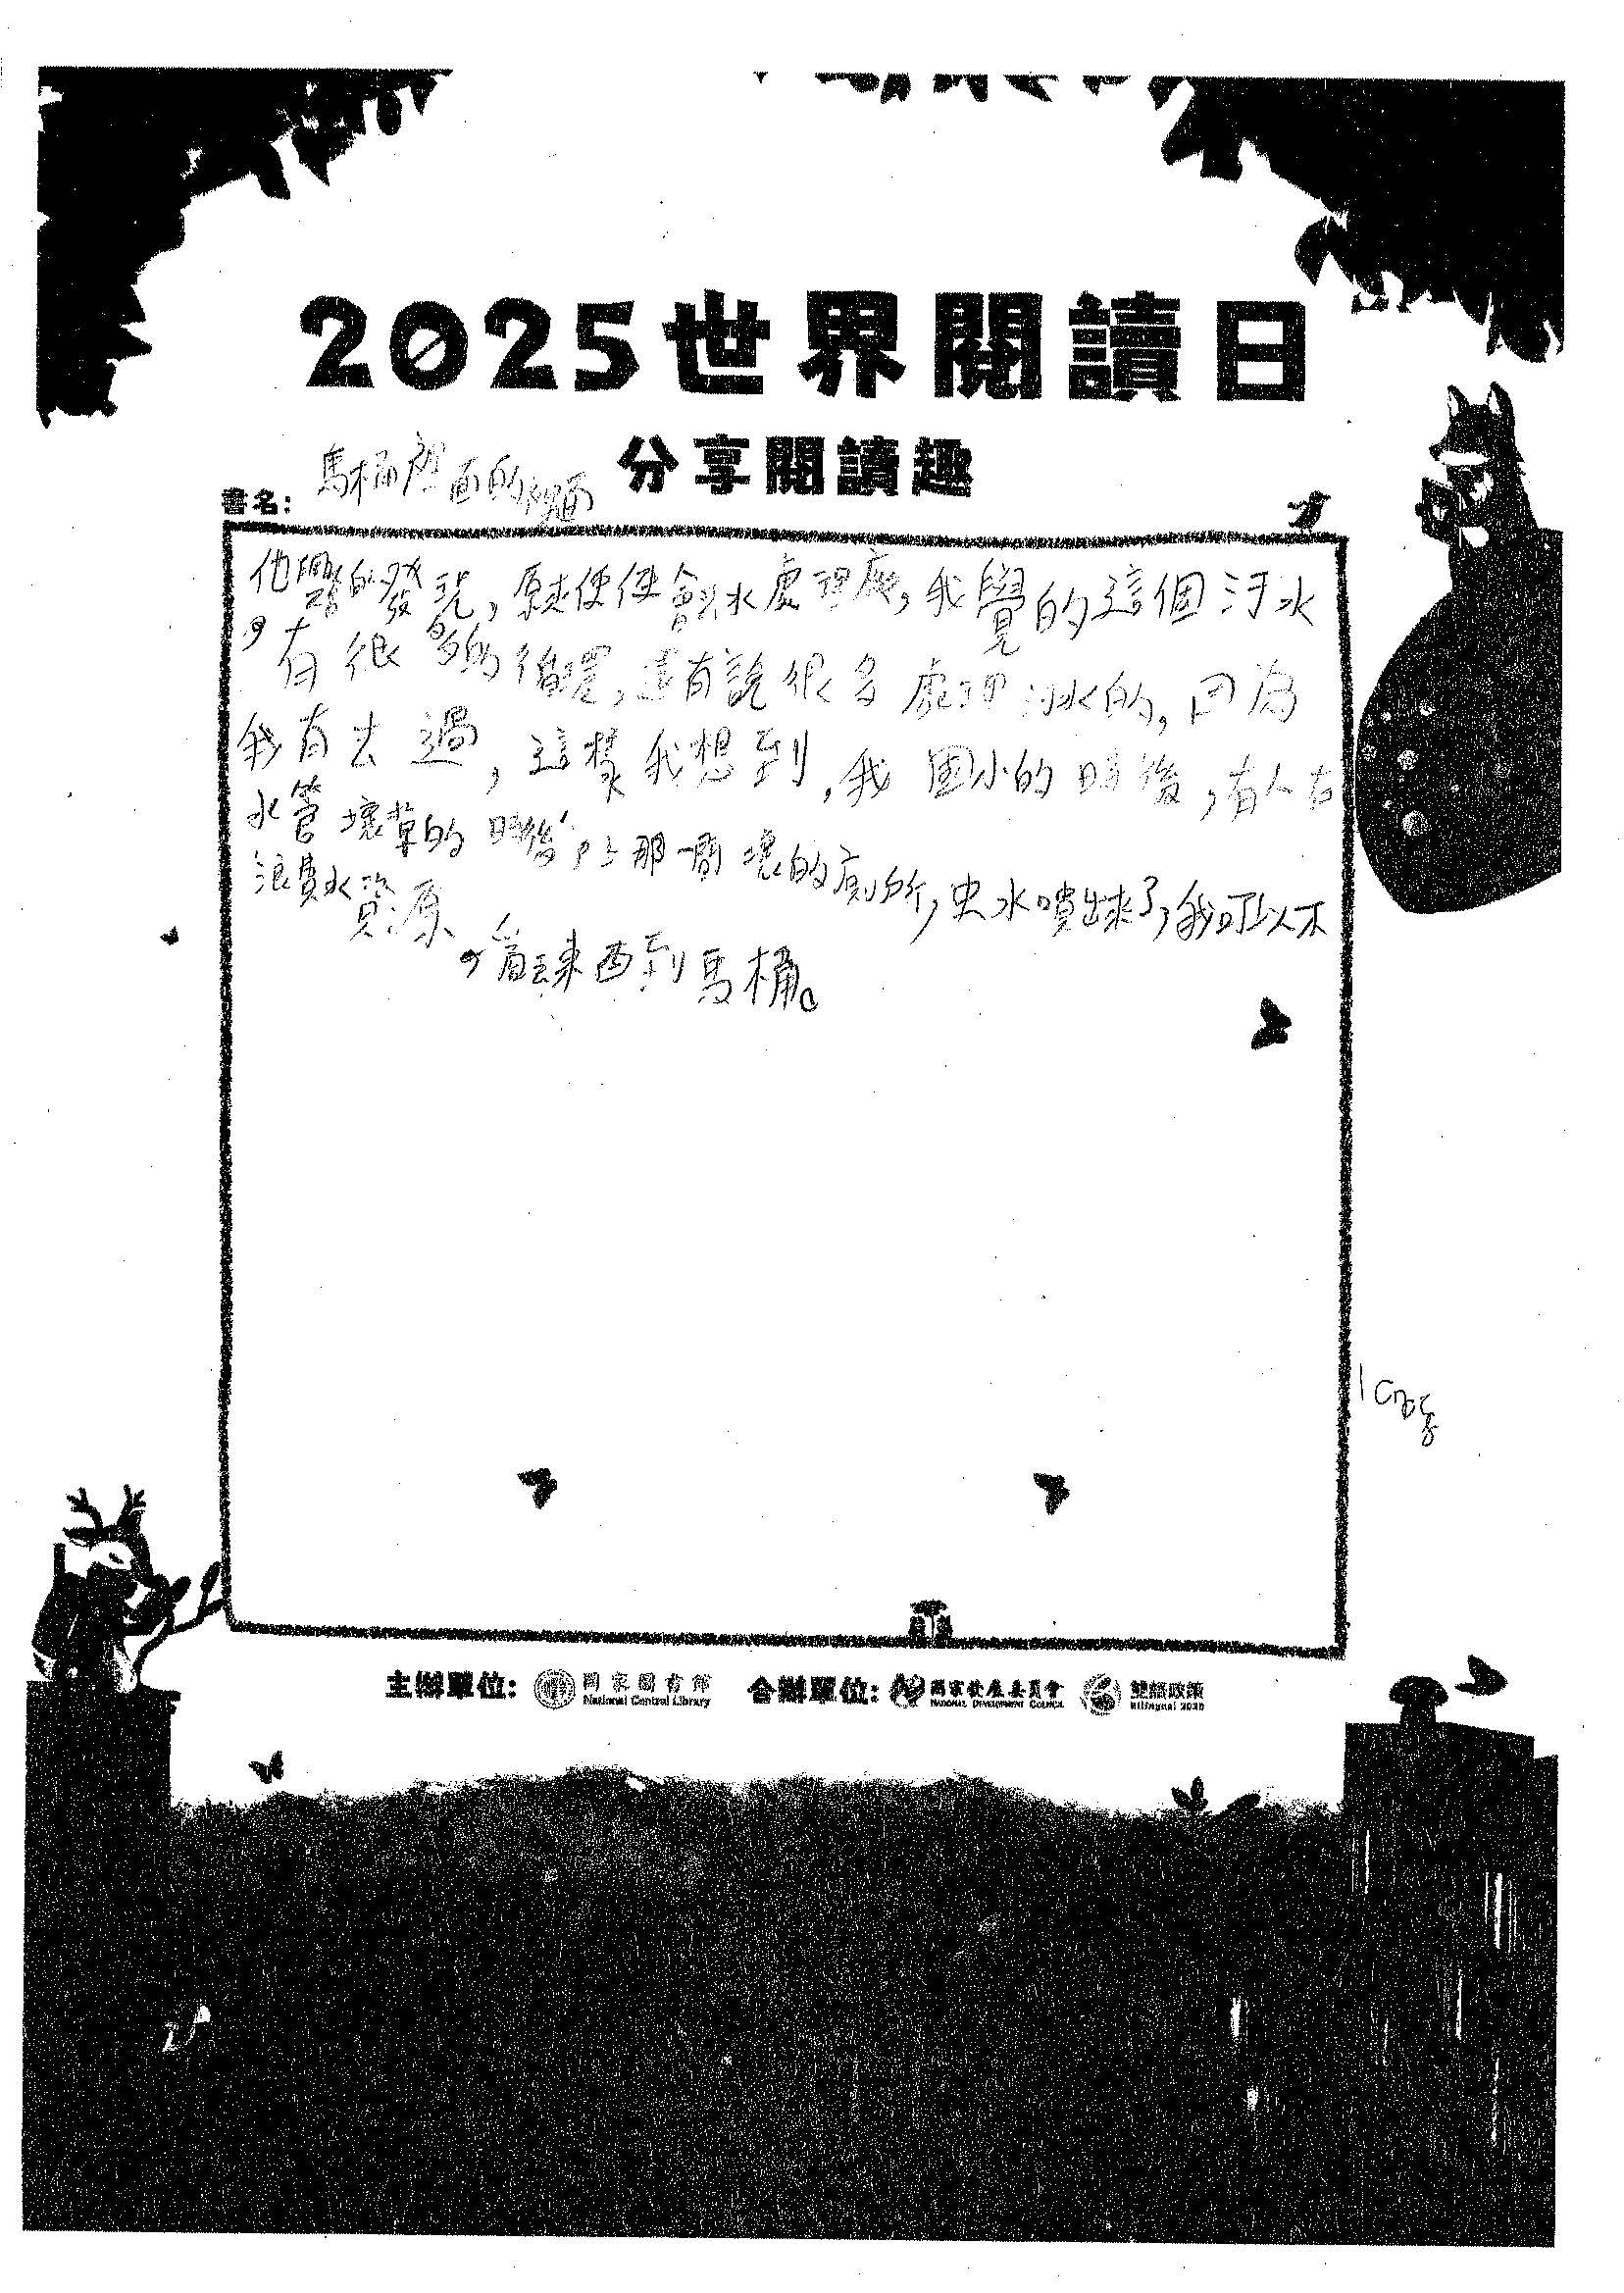 2025世界閱讀日
分享閱讀趣
書名: 馬桶裡面的
他 的發現,原來便便會 水處理廠,我覺的這個汙水
,有很多的 ,還有說很多處理汙水的,因為
我有去過,這樣我想到,我國小的時後,有人在
水管壞掉的時後 那一間壞的廁所,史水噴出來了,我可以不
浪費水資源
,看丟東西到馬桶。
主辦單位: 國家圖書館 National Central Library 合辦單位: 國家發展委員會 NATIONAL DEVELOPMENT COUNCIL 雙語政策 Bilingual 2030